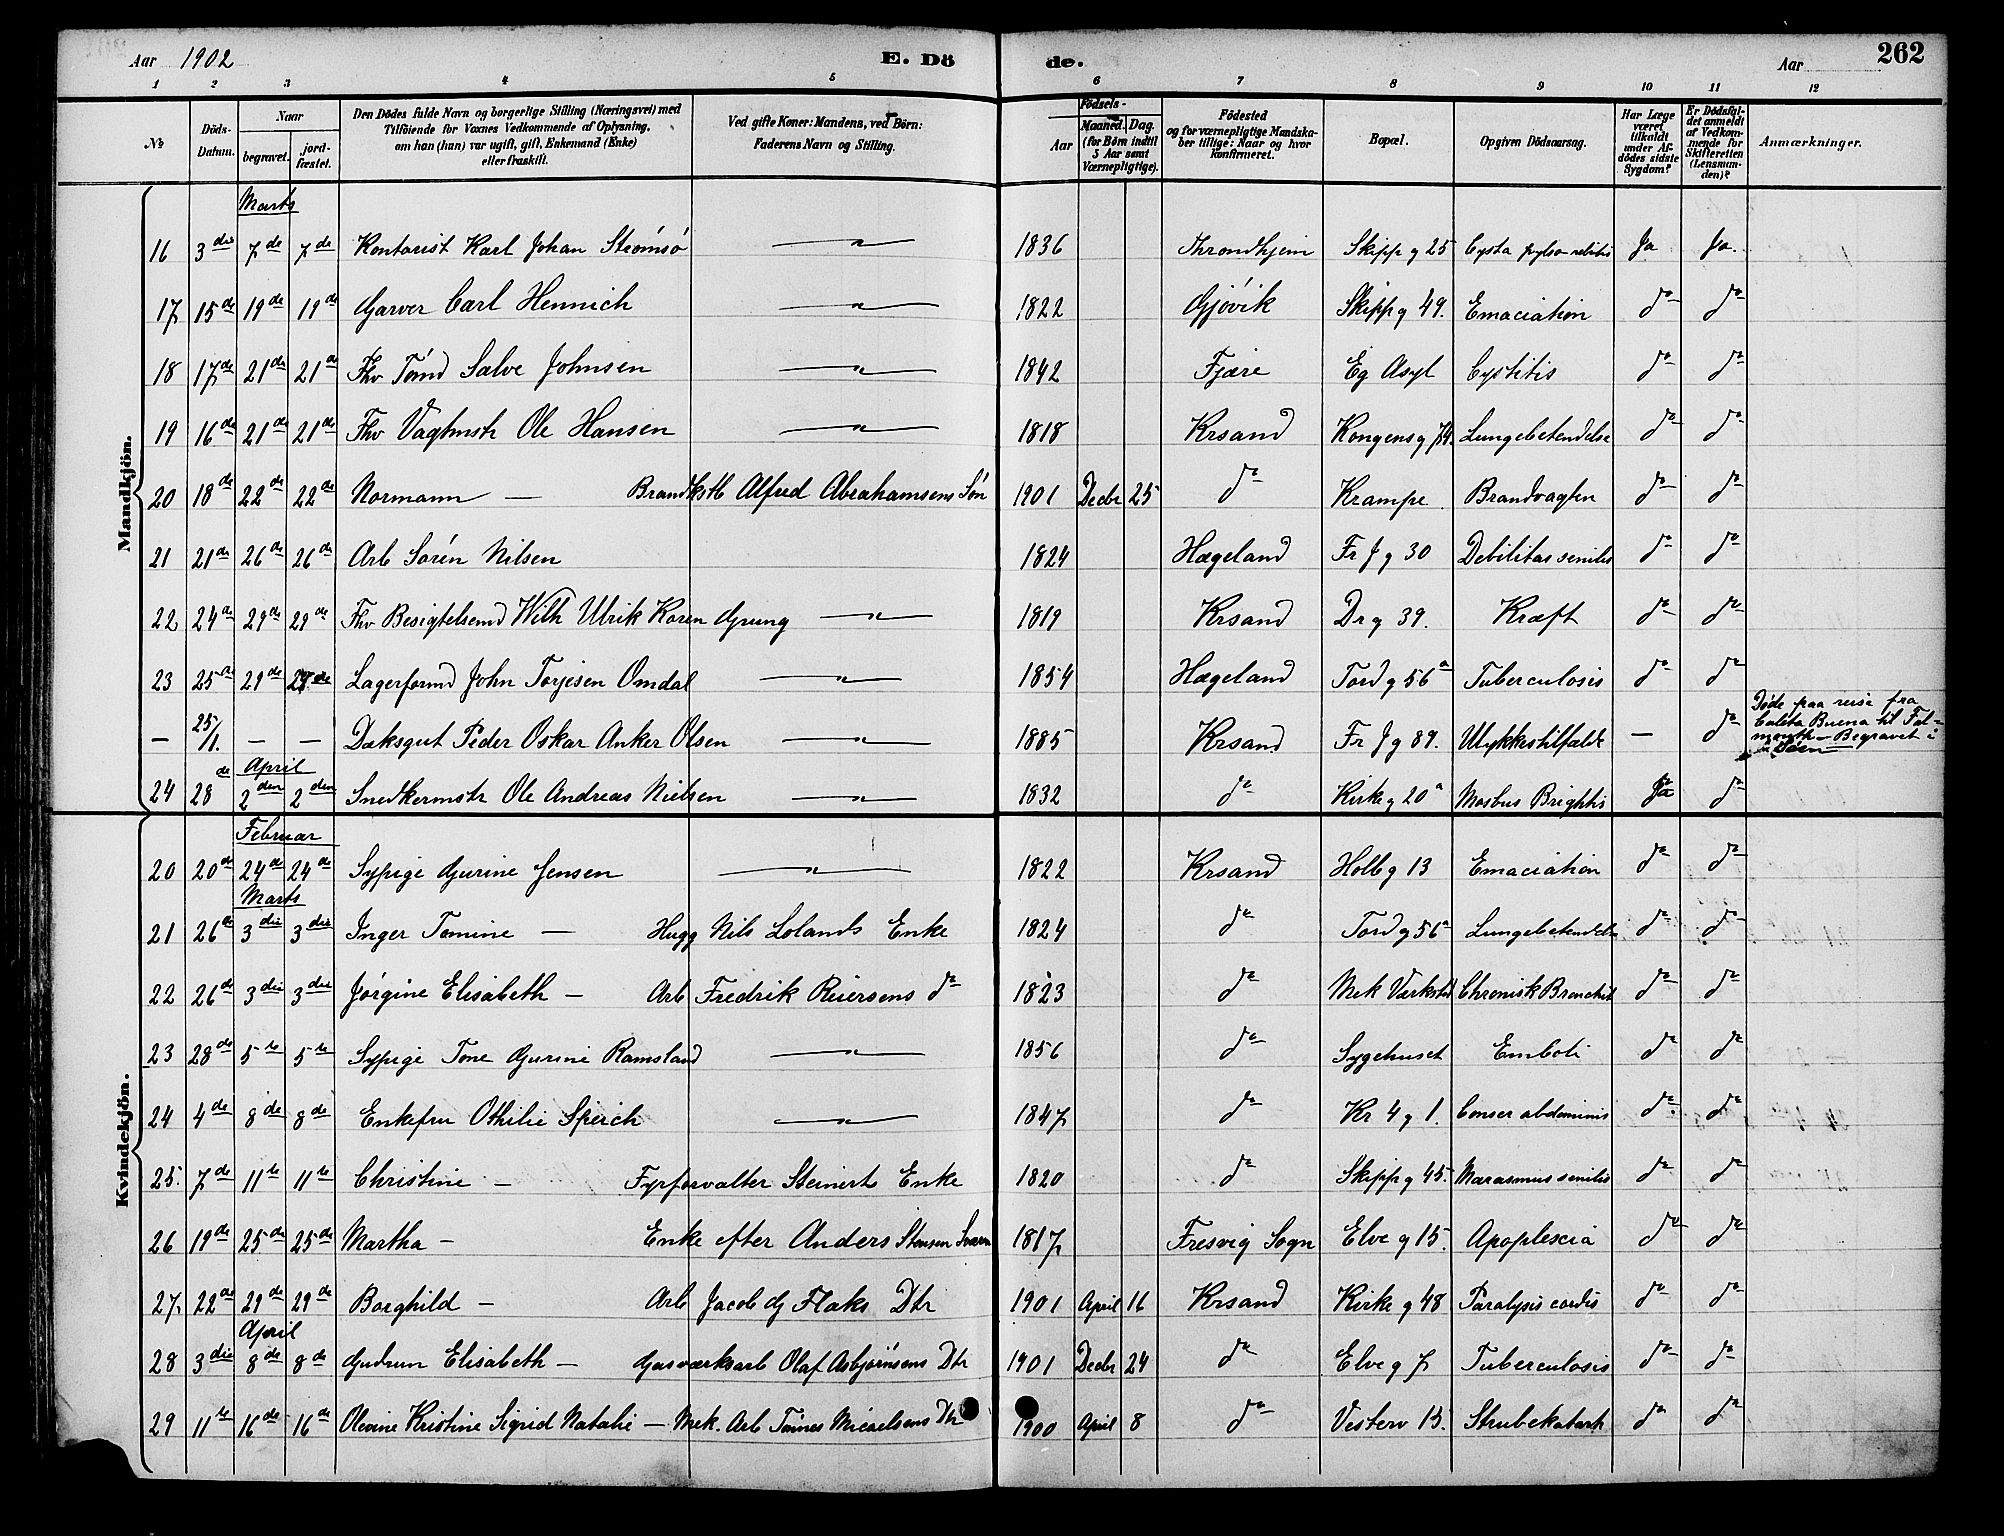 Aar 1902 E. Dö de. Aar 262
1 2 3 4 5 6 7 8 9 10 11 12
No Döds-Datum. Naar begravet. jordfæstet. Den Dödes fulde Navn og borgerlige Stilling (Næringsvei) med Tilföiende for Voxnes Vedkommende af Oplysning, om han (hun) var ugift, gift, Enkemand (Enke) eller fraskilt. Ved gifte Koner: Mandens, ved Börn: Faderens Navn og Stilling. Födsels- Aar Maaned. Dag. (for Börn indtil 5 Aar samt Værnepligtige). Födested og for værnepligtige Mandskaber tillige: Naar og hvor konfirmeret. Bopæl. Opgiven Dödsaarsag. Har Læge været tilkaldt under Afdödes sidste Sygdom? Er Dödsfaldet anmeldt af Vedkommende for Skifteretten (Lensmanden)? Anmærkninger.
Mandkjön.
Marts
16 3die 7de 7de Kontorist Karl Johan Strömsö — " — 1836 Throndhjem Skipp g 25 Cysta Ja Ja.
17 15de 19de 19de Garver Carl Hennich — " — 1822 Gjövik Skipp g 49. Emaciation do do
18 17de 21de 21de Fhv Tömd Salve Johnsen — " — 1842 Fjære Eg Asyl Cystitis do do
19 16de 21de 21de Fhv Vagtmstr Ole Hansen — " — 1818 Krsand Kongens g 74. Lungebetendelse do do
20 18de 22de 22de Normann — Brandkstb Alfred Abrahamsens Sön 1901 Decbr 25 do Krampe Brandvagten do do
21 21de 26de 26de Arb Sörén Nilsen 1824 Hægeland Fr J g 30 Debilitas senilis do do
22 24de 29de 29de Fhv Besigtelsemd Wilh Ulrik Koren Grung — " — 1819 Krsand Dr g 39. Kræft do do
23 25de 29de 29de Lagerformd John Torjesen Omdal — " — 1854 Hægeland Tord g 56a Tuberculosis do do
— 25/1. — — Dæksgut Peder Oskar Anker Olsen — " — 1885 Krsand Fr J g 89. Ulykkestilfælde — do Döde paa reise fra
Caleta Buena til Fal-
mouth — Begravet i
Söen
April
24 28de 2den 2den Snedkermstr Ole Andreas Nielsen — " — 1832 do Kirke g 20a Morbus Brightis Ja do
Kvindekjön.
Februar
20 20de 24de 24de Sypige Gurine Jensen — " — 1822 Krsand Holb g 13 Emaciation do do
Marts
21 26de 3die 3die Inger Tomine — Hugg Nils Lolands Enke 1824 do Tord g 56a Lungebetendelse do do
22 26de 3die 3die Jörgine Elisabeth — Arb Fredrik Reiersens do 1823 do Mek Værksted Chronisk Bronchit do do
23 28de 5te 5te Sypige Tone Gurine Ramsland — " — 1856 do Sygehuset Emboli do do
24 4de 8de 8de Enkefru Othilie Speich — " — 1847 do Kr 4 g 1. Cancer abdominis do do
25. 7de 11te 11te Christine — Fyrforvalter Steinerts Enke 1820 do Skipp g 45. Marasmus senilis do do
26 19de 25de 25de Martha — Enke efter Anders Stensen 1817 Fresvig Sogn Elve g 15. Apoplexia do do
27. 22de 29de 29de Borghild — Arb Jacob G Flaks Dtr 1901 April 16 Krsand Kirke g 48 Paralysis cordis do do
April
28 3die 8de 8de Gudrun Elisabeth — Gasværksarb Olaf Asbjörnsens Dtr 1901 Decbr 24 do Elve g 7 Tuberculosis do do
29 11te 16de 16de Olevine Kristine Sigrid Natalie — Mek. Arb Tönnes Micaelsens Dtr 1900 April 8 do Vesterv 15. Strubekatarh do do